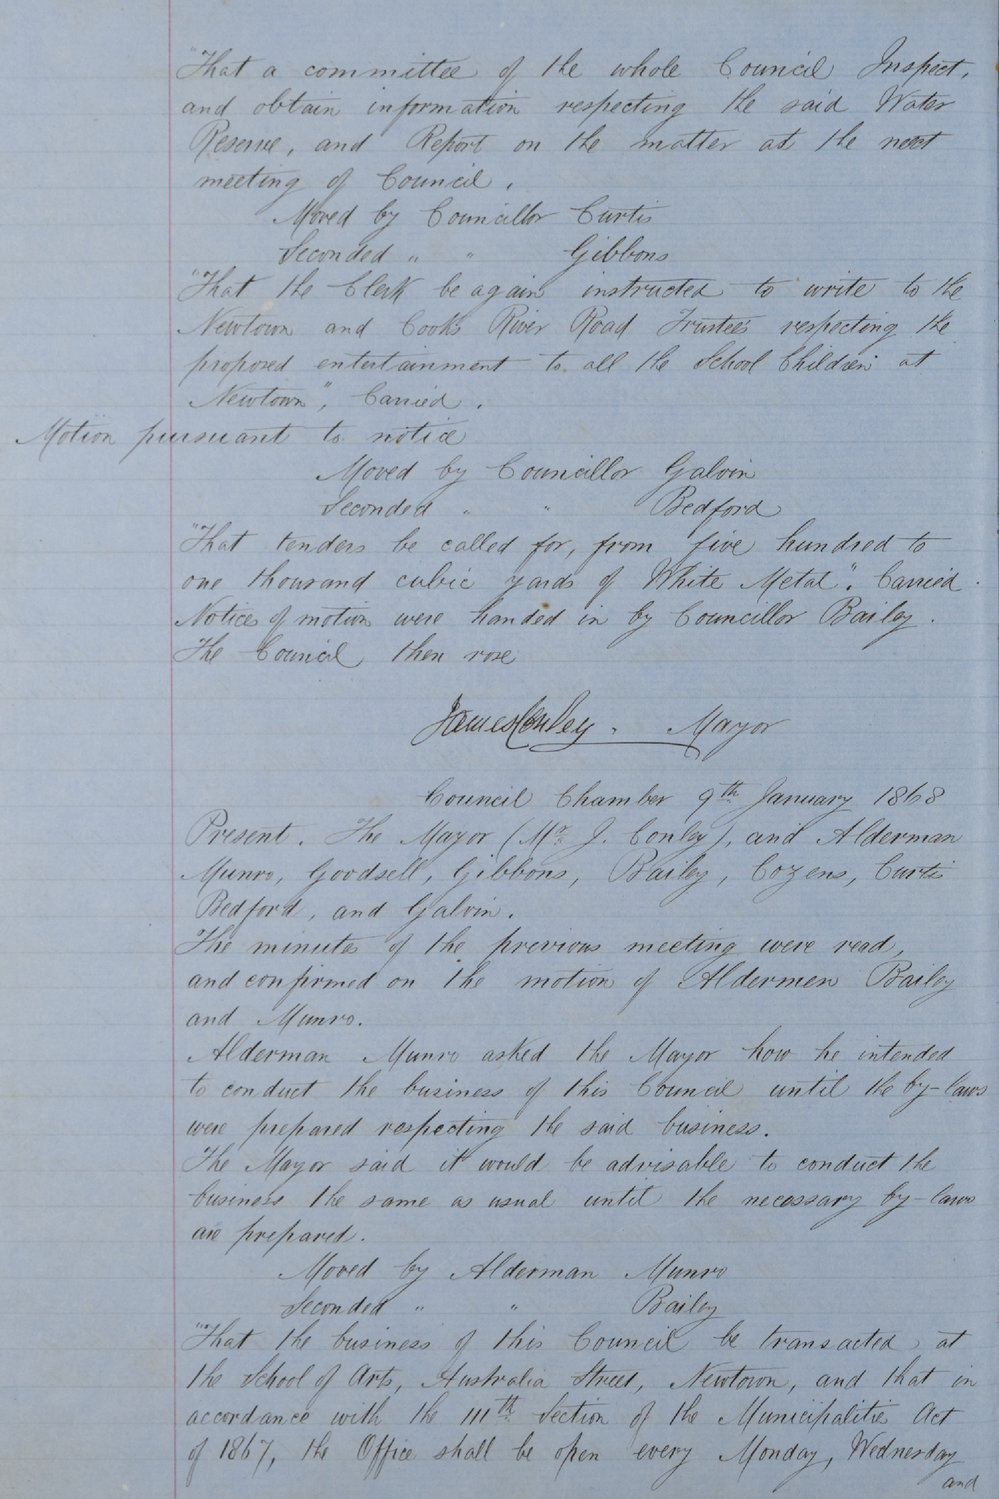 "That a committee of the whole Council Inspect,
and obtain information respecting the said Water
Reserve, and Report on the matter at the next
meeting of Council.
Moved by Councillor Curtis
Seconded " " Gibbons
"That the Clerk be again instructed to write to the
Newtown and Cooks River Road Trustees respecting the
proposed entertainment to all the School Children at
Newtown", Carried.
Motion pursuant to notice
Moved by Councillor Galvin
Seconded " " Bedford
"That tenders be called for, from five hundred to
one thousand cubic yards of White Metal". Carried.
Notices of motion were handed in by Councillor Bailey.
The Council then rose
James Conley. Mayor
Council Chamber 9th January 1868
Present. The Mayor (Mr. J. Conley), and Alderman
Munro, Goodsell, Gibbons, Bailey, Cozens, Curtis
Bedford, and Galvin.
The minutes of the previous meeting were read,
and confirmed on the motion of Aldermen Bailey
and Munro.
Alderman Munro asked the Mayor how he intended
to conduct the business of this Council until the by-laws
were prepared respecting the said business.
The Mayor said it would be advisable to conduct the
business the same as usual until the necessary by-laws
are prepared.
Moved by Alderman Munro
Seconded " " Bailey
"That the business of this Council be transacted at
the School of Arts, Australia Street, Newtown, and that in
accordance with the 111th Section of the Municipalitie Act
of 1867, the Office shall be open every Monday, Wednesday
and